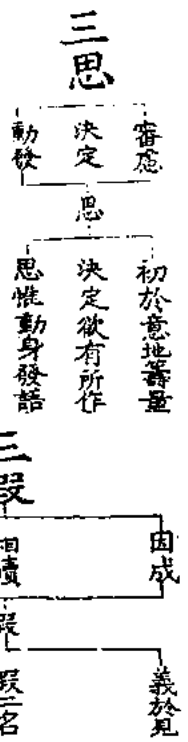 三思
審慮
決定
動發
思
初於意地籌量
決定欲有所作
思惟動身發語
三假
因成
相續
假
義於見
假三名